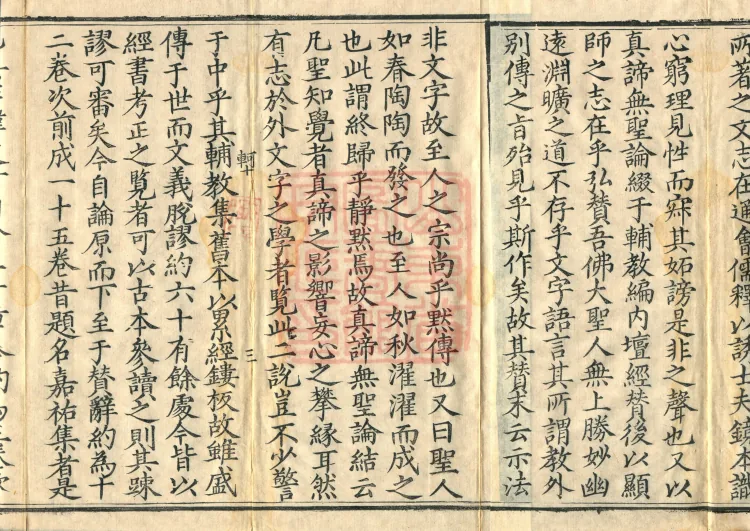 所著之文志在通會儒釋以誘士夫鏡本識
心窮理見性而寂其妬謗是非之聲也又以
真諦無聖論綴于輔教編內壇經贊後以顯
師之志在乎弘贊吾佛大聖人無上勝妙幽
遠淵曠之道不存乎文字語言其所謂教外
別傳之旨殆見乎斯作矣故其贊末云示法
非文字故至人之宗尚乎默傳也又曰聖人
如春陶陶而發之也至人如秋濯濯而成之
也此謂終歸乎靜默焉故真諦無聖論結云
凡聖知覺者真諦之影響妄心之攀緣耳然
有志於外文字之學者覽此二說豈不少警
軻十
三
于中乎其輔教集舊本以累經鏤板故雖盛
傳于世而文義脫謬約六十有餘處今皆以
經書考正之覽者可以古本參讀之則其踈
謬可審矣今自論原而下至于賛辭約為十
二卷次前成一十五卷昔題名嘉祐集者是